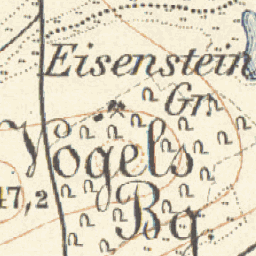 Eisenstein
Gr.
Vögels
47,2
Bg.